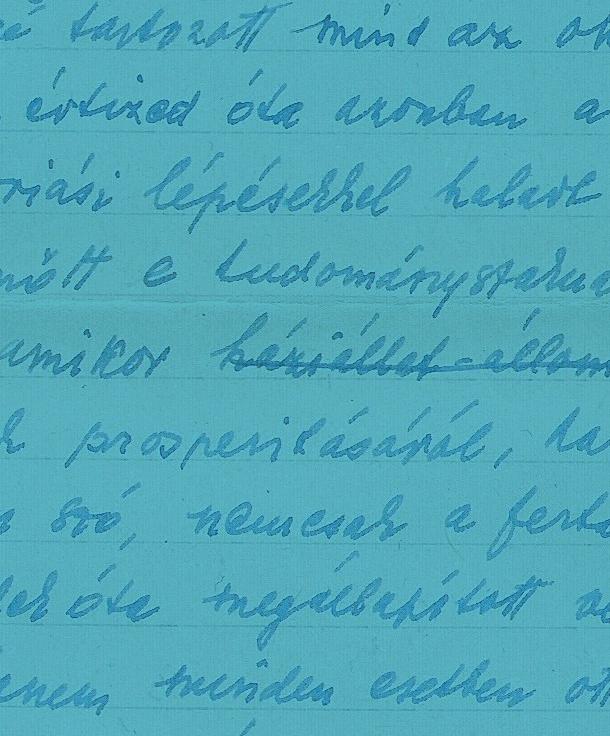 tartozott mind az
évtized óta azonban a
riási lépésekkel haladt
nőtt e tudományszakna
amikor háziállat-állom
k prosperitásáról, ha
a szó, nemcsak a fertő
óta megállapított
anem minden esetben ott